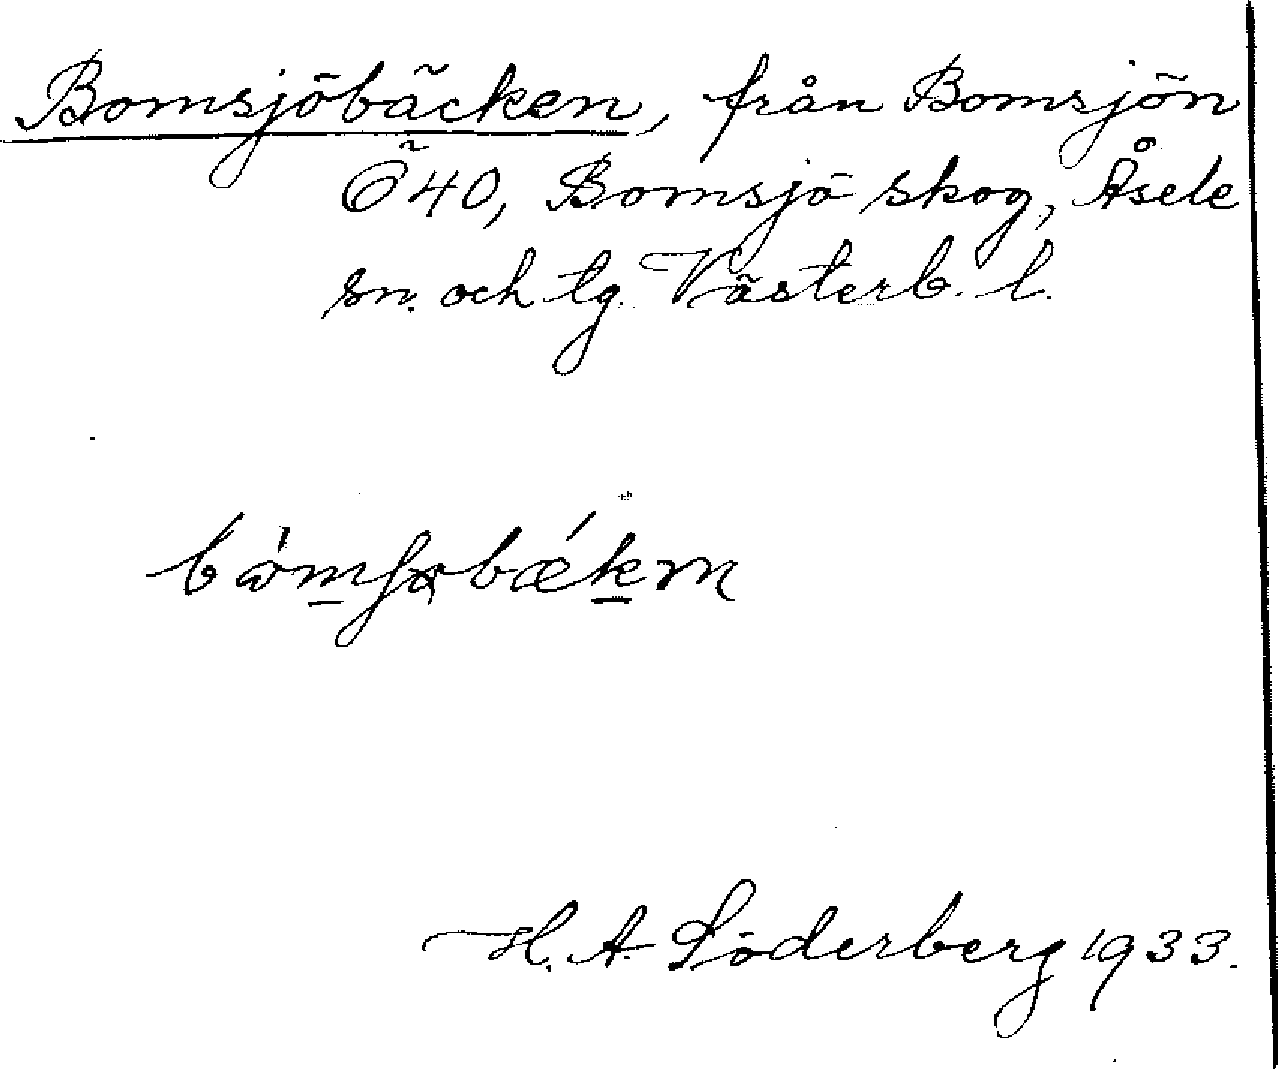 Bomsjöbäcken, från Bomsjön
Ö 40, Bomsjö skog, Åsele
sn. och tg. Västerb. l.
H. A. Söderberg 1933.